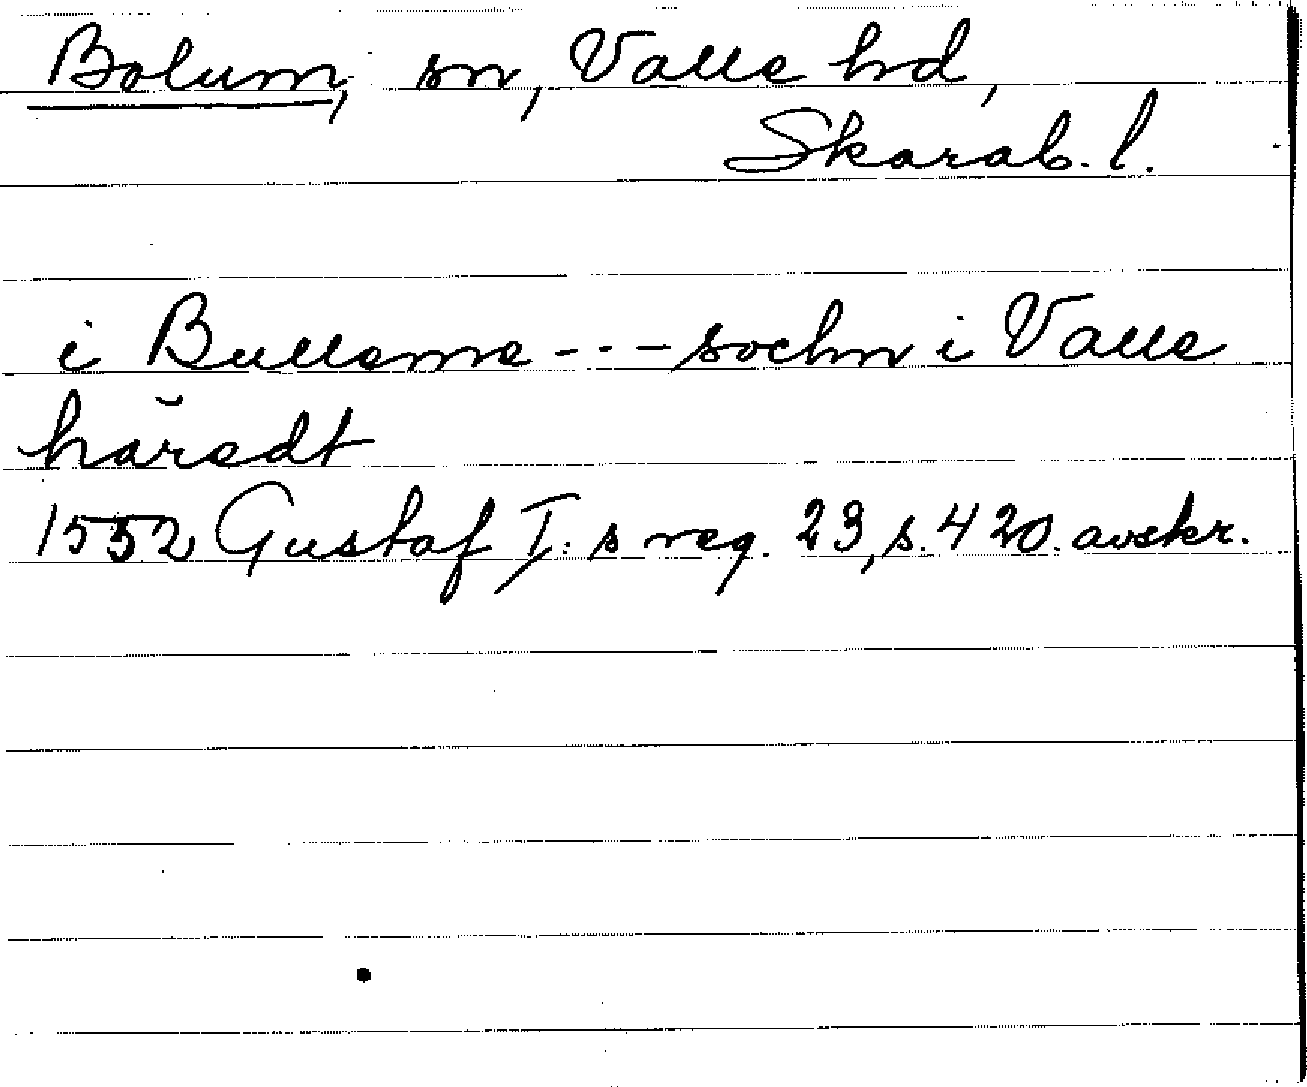 Bolum, sn, Valle hd,
Skarab. l.
i Bulleme --- sochn i Valle
häredt
1552 Gustaf I:s reg. 23, s. 420. avskr.